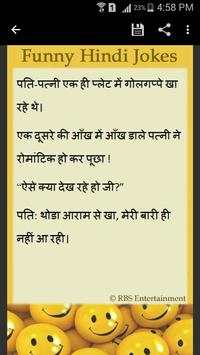 4:58 PM
Funny Hindi Jokes
पति-पत्नी एक ही प्लेट में गोलगप्पे खा
रहे थे।
एक दूसरे की आँख में आँख डाले पत्नी ने
रोमांटिक हो कर पूछा !
“ऐसे क्या देख रहे हो जी?”
पति: थोडा आराम से खा, मेरी बारी ही
नहीं आ रही।
© RBS Entertainment